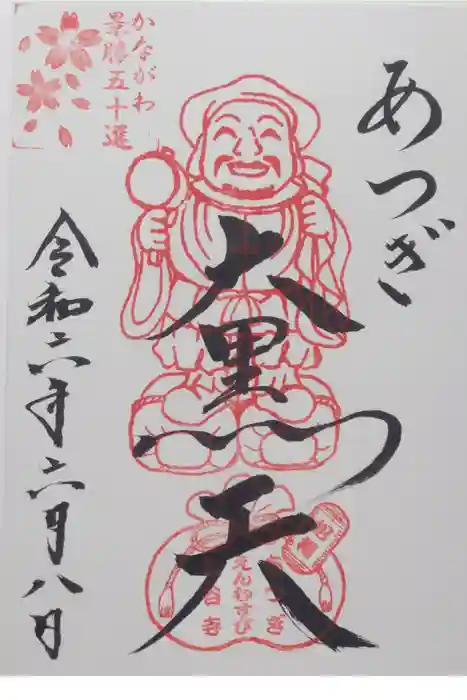 あつぎ
大黒天
令和六年六月八日
かながわ
景勝五十選
えんむすび